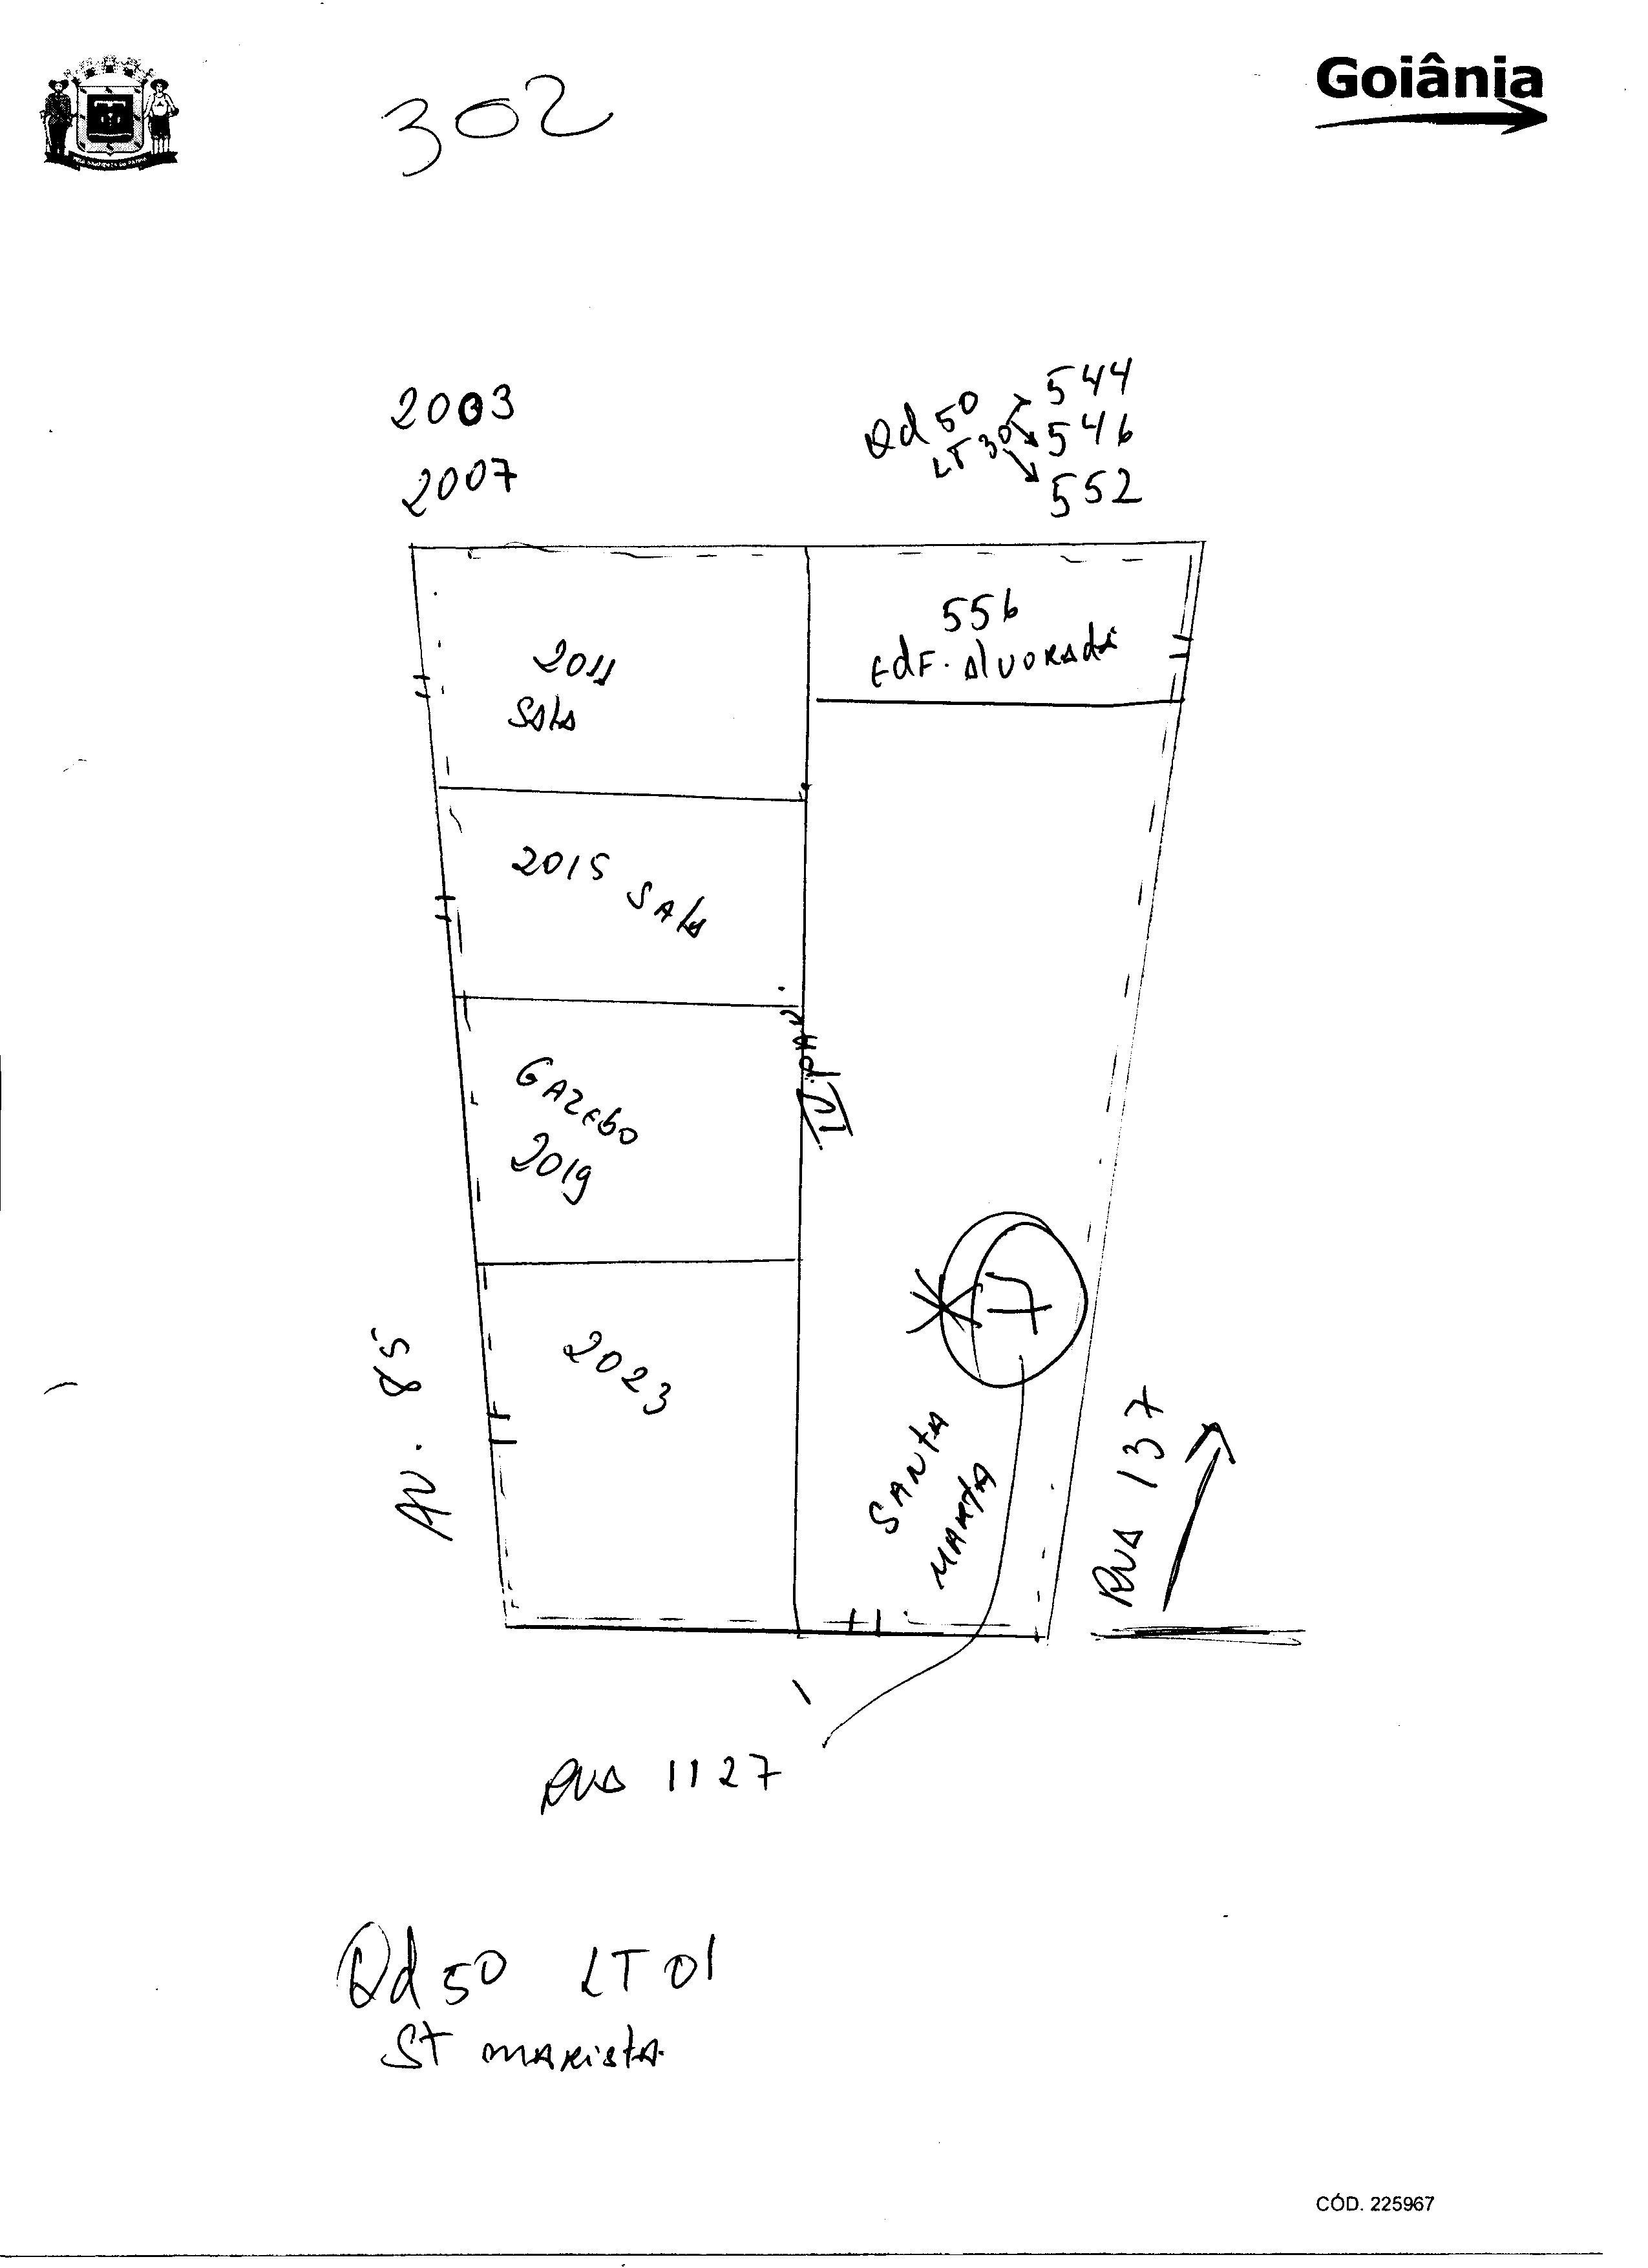 Goiânia
302
2003
2007
Qd 50
LT 30
544
546
552
556
Edf. Alvorada
2011
Sala
2015 Sala
IV. PAV
Gazebo
2019
2023
17
Santa
Marta
Av. 85
Rua 137
Rua 1127
Qd 50 LT 01
St Marista
CÓD. 225967